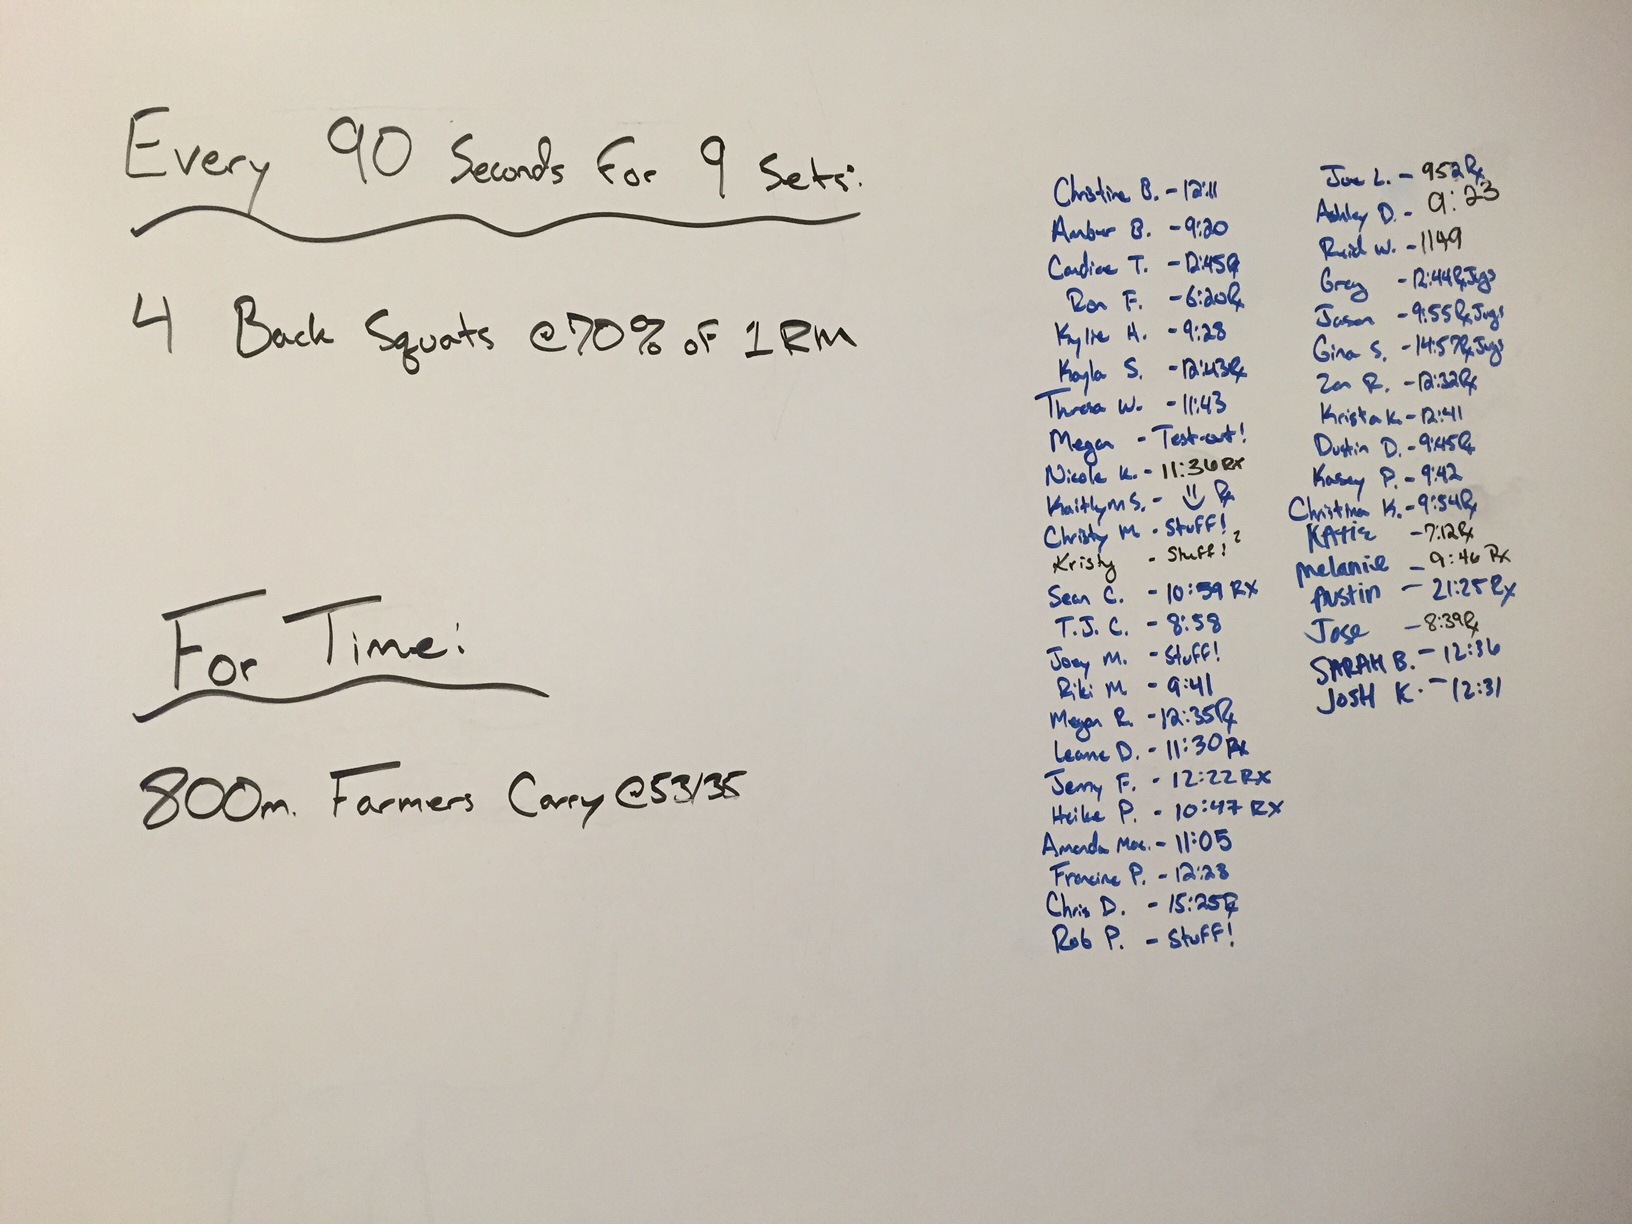 Every 90 Seconds For 9 Sets:
4 Back Squats @70% of 1RM
For Time:
800m. Farmers Carry @53/35
Christine B. - 12:11
Amber B. - 9:20
Candice T. - 12:45Rx
Ron F. - 6:20Rx
Kylie H. - 9:28
Kayla S. - 12:43Rx
Theresa W. - 11:43
Megan - Test-out!
Nicole K. - 11:36 RX
Kaitlyn S. - Rx
Christy M. - Stuff!
Kristy - Stuff!?
Sean C. - 10:59 RX
T.J. C. - 8:58
Joey M. - Stuff!
Riki M - 9:41
Megan R. - 12:35Rx
Leanne D. - 11:30 Rx
Jenny F. - 12:22 RX
Heike P. - 10:47 RX
Amanda Mac. - 11:05
Francine P. - 12:28
Chris D. - 15:25Rx
Rob P. - Stuff!
Joe L. - 952Rx
Ashley D. - 9:23
Reid W. - 1149
Greg - 12:44RxJugs
Jason - 9:55RxJugs
Gina S. - 14:57RxJugs
R. - 12:32Rx
Krista K - 12:41
Dustin D. - 9:45Rx
Kasey P. - 9:42
Christina K. - 9:54Rx
KATIE - 7:12Rx
Melanie - 9:46 Rx
Austin - 21:25 Rx
Jose - 8:39Rx
SARAH B. - 12:36
JOSH K. - 12:31